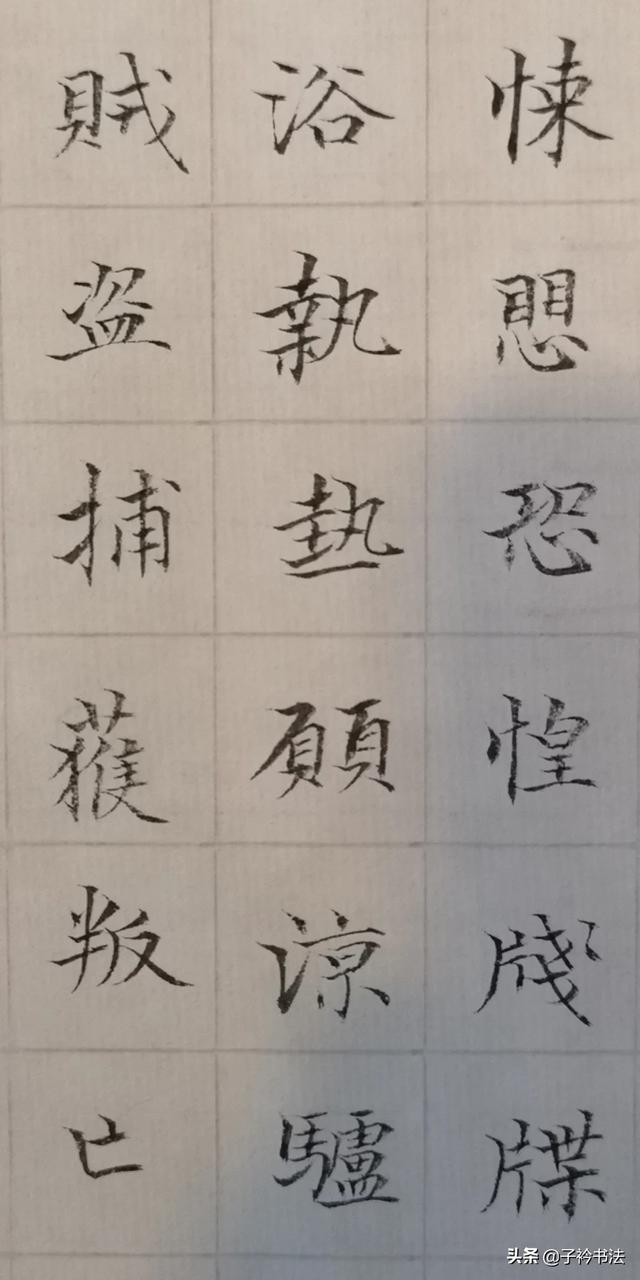 悚愳恐惶牋牒
浴執熱願涼驢
賊盗捕獲叛亡
头条 @子衿书法